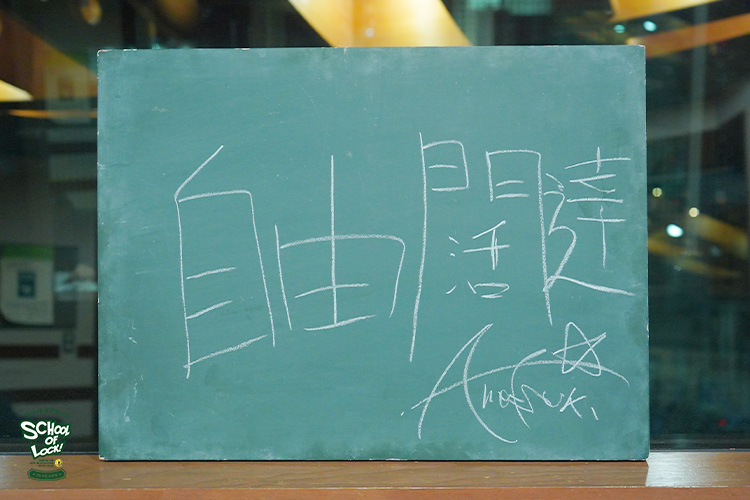 自由闊達
SCHOOL
OF
LOCK!